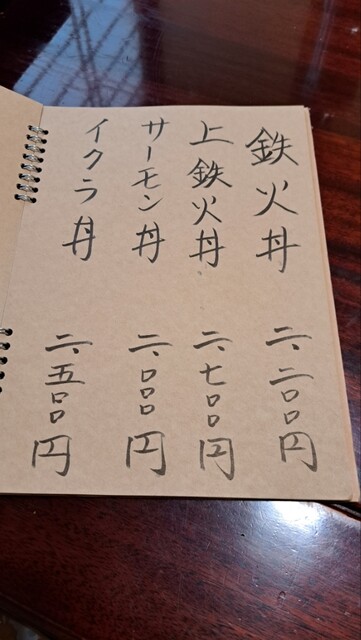 鉄火丼 二、二〇〇円
上鉄火丼 二、七〇〇円
サーモン丼 二、〇〇〇円
イクラ丼 二、五〇〇円